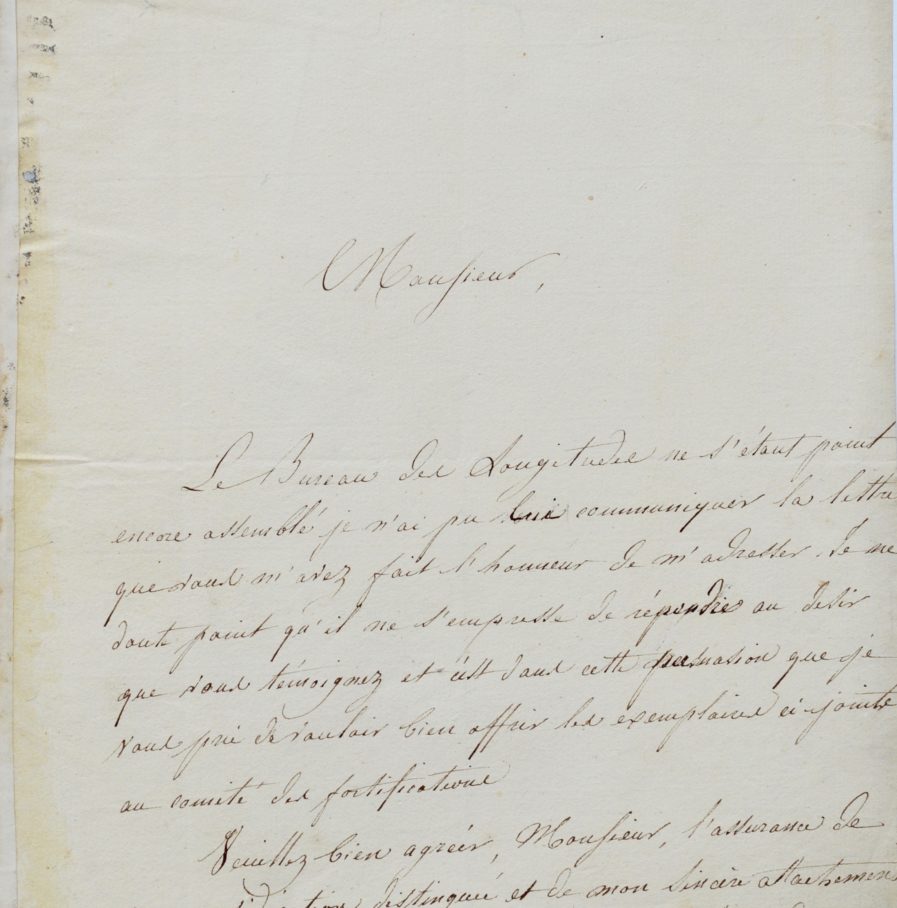 Monsieur,
Le Bureau des Longitudes ne s'étant point
encore assemblé je n'ai pu lui communiquer la lettre
que vous m'avez fait l'honneur de m'adresser. Je ne
doute point qu'il ne s'empresse de répondre au desir
que vous témoignez et c'est dans cette persuasion que je
vous prie de vouloir bien offrir les exemplaires ci-joints
au comité des fortifications
Veuillez bien agréer, Monsieur, l'assurance de
distinguée et de mon sincère attachement